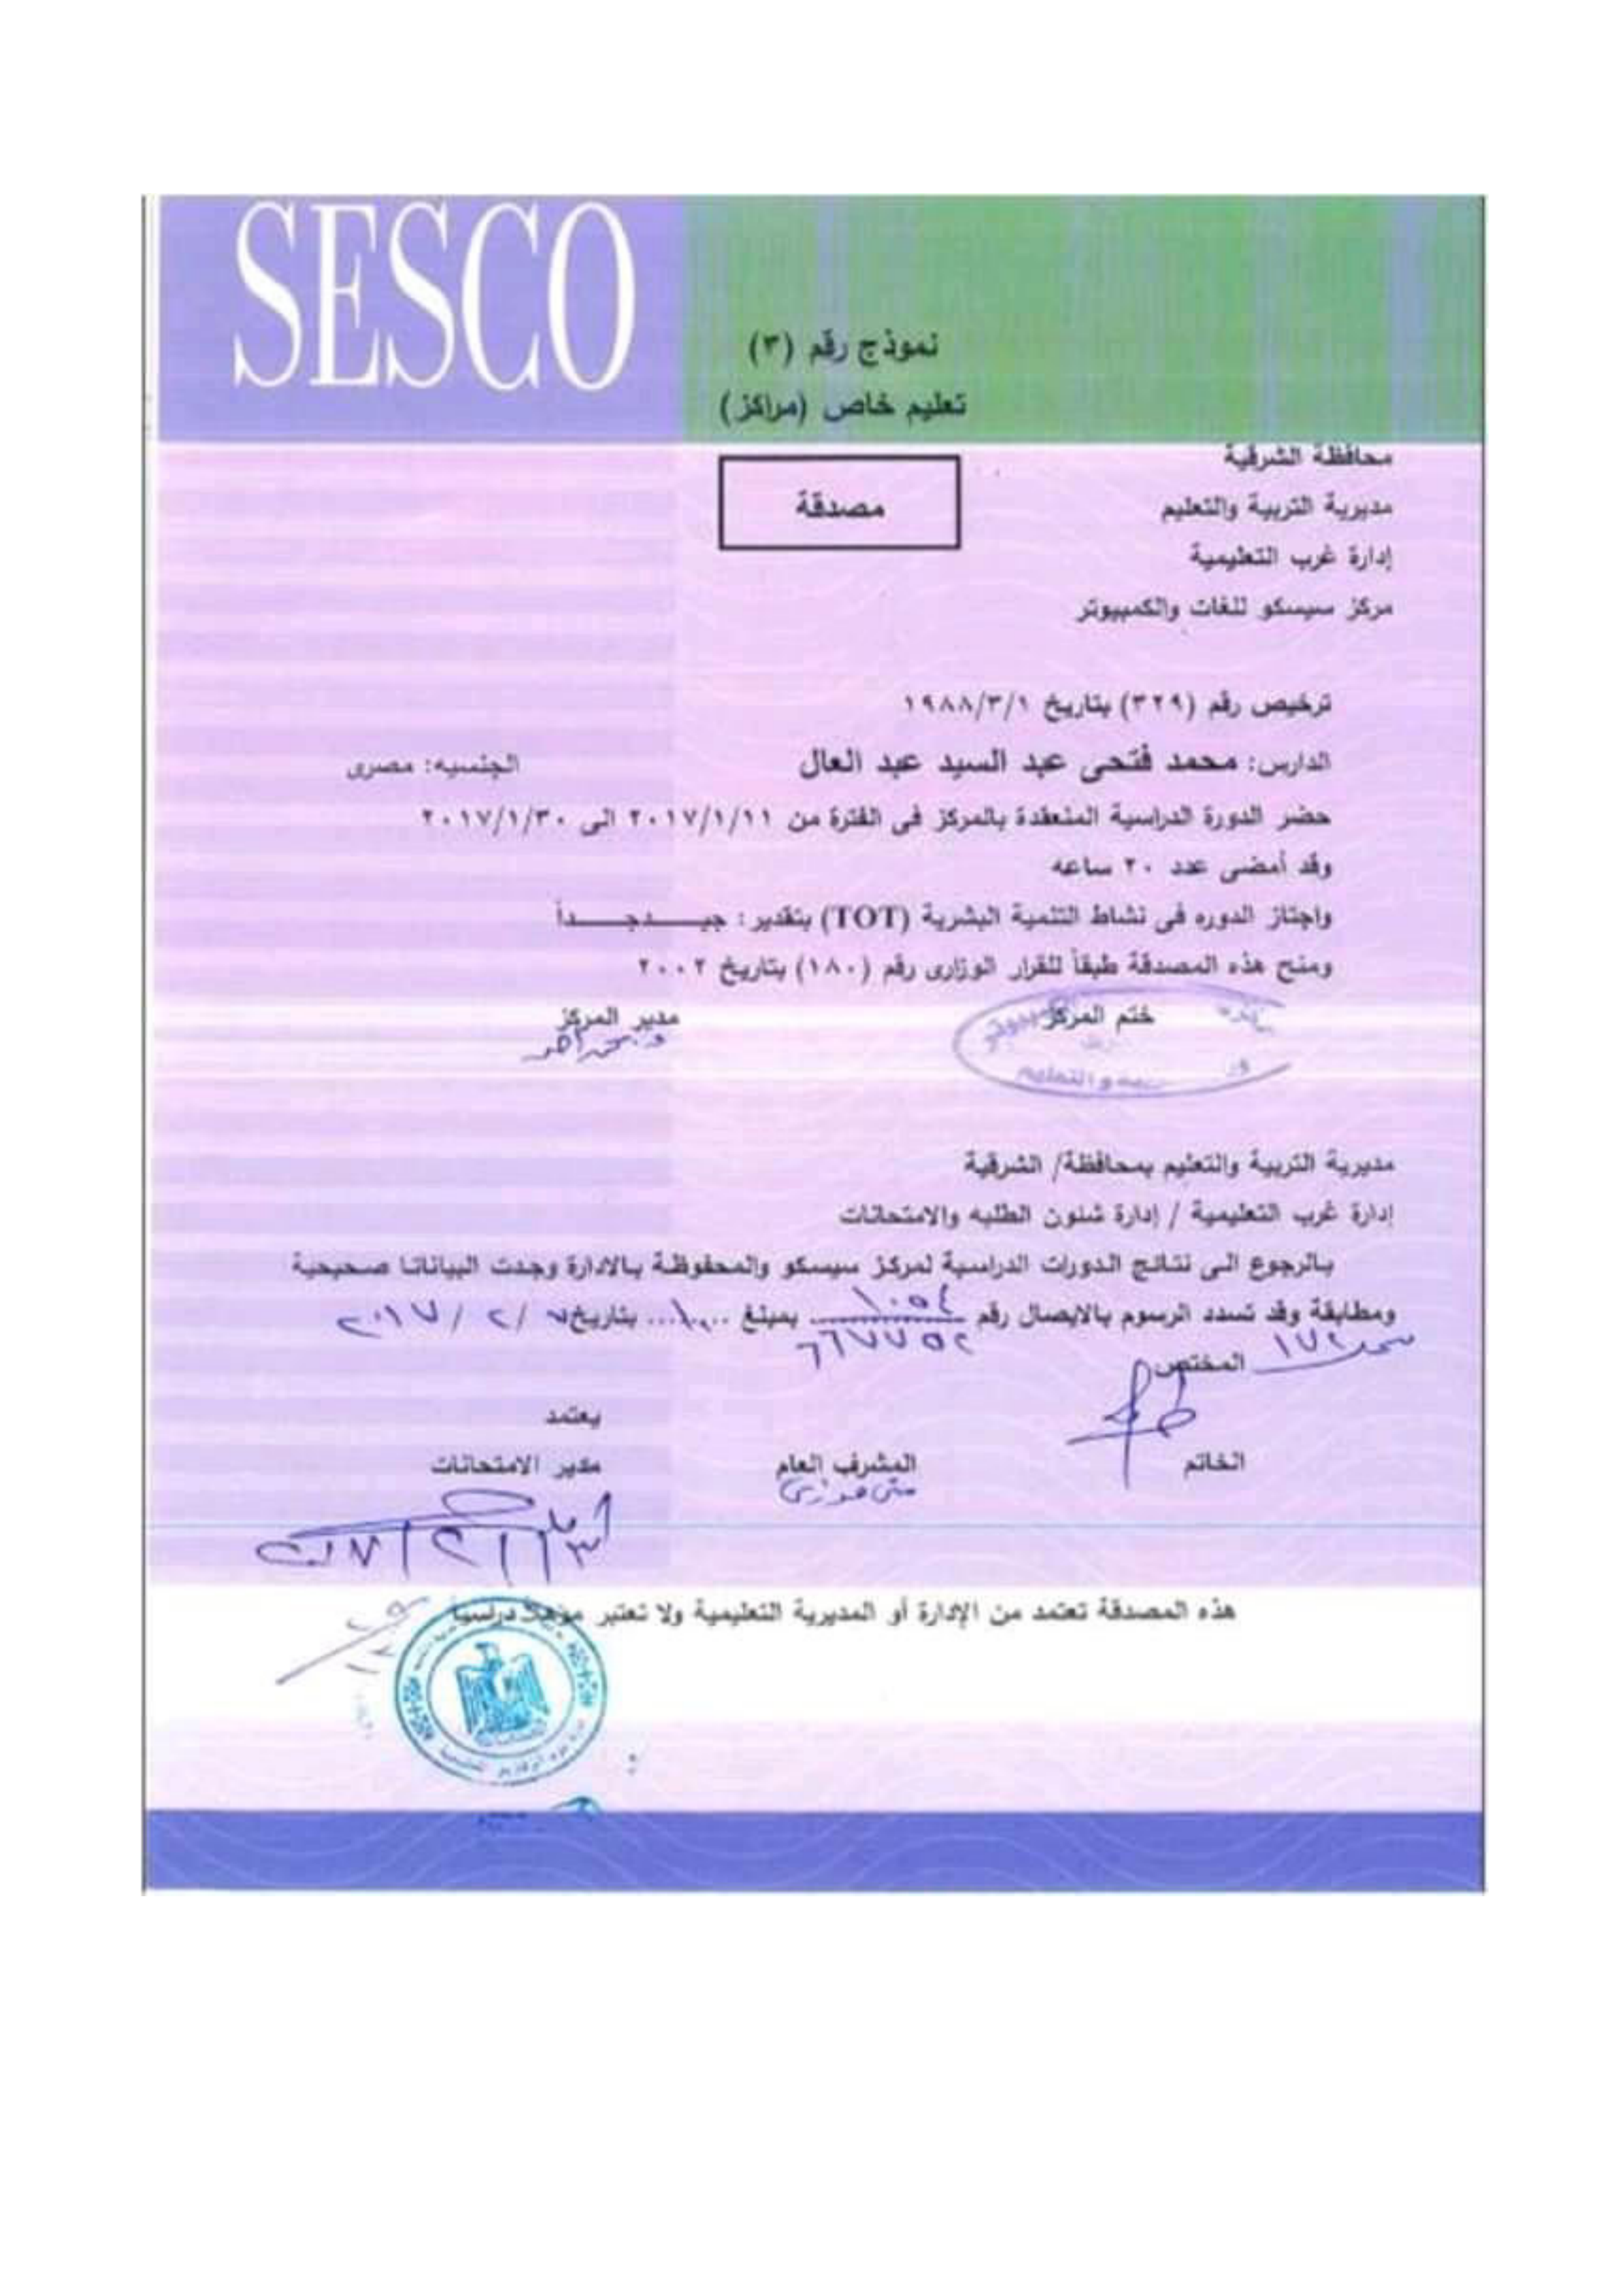 SESCO
نموذج رقم (٣)
تعليم خاص (مراكز)
محافظة الشرقية
مصدقة
مديرية التربية والتعليم
إدارة غرب التعليمية
مركز سيسكو للغات والكمبيوتر
ترخيص رقم (٣٢٩) بتاريخ ١٩٨٨/٣/١
الدارس: محمد فتحى عبد السيد عبد العال الجنسيه: مصرى
حضر الدورة الدراسية المنعقدة بالمركز فى الفترة من ٢٠١٧/١/١١ الى ٢٠١٧/١/٣٠
وقد أمضى عدد ٢٠ ساعه
واجتاز الدوره فى نشاط التنمية البشرية (TOT) بتقدير: جيـــــدجـــــداً
ومنح هذه المصدقة طبقاً للقرار الوزارى رقم (١٨٠) بتاريخ ٢٠٠٢
ختم المركز مدير المركز
مديرية التربية والتعليم بمحافظة/ الشرقية
إدارة غرب التعليمية / إدارة شئون الطلبه والامتحانات
بالرجوع الى نتائج الدورات الدراسية لمركز سيسكو والمحفوظة بالادارة وجدت البياناتا صحيحية
ومطابقة وقد تسدد الرسوم بالايصال رقم ١٠٥٤ بمبلغ بتاريخ ٧/ ٢ / ٢٠١٧
٦٦٧٧٥٢
المختص ١٧٢
يعتمد
الخاتم المشرف العام مدير الامتحانات
منى فوزى
هذه المصدقة تعتمد من الإدارة أو المديرية التعليمية ولا تعتبر مؤهلاً دراسياً